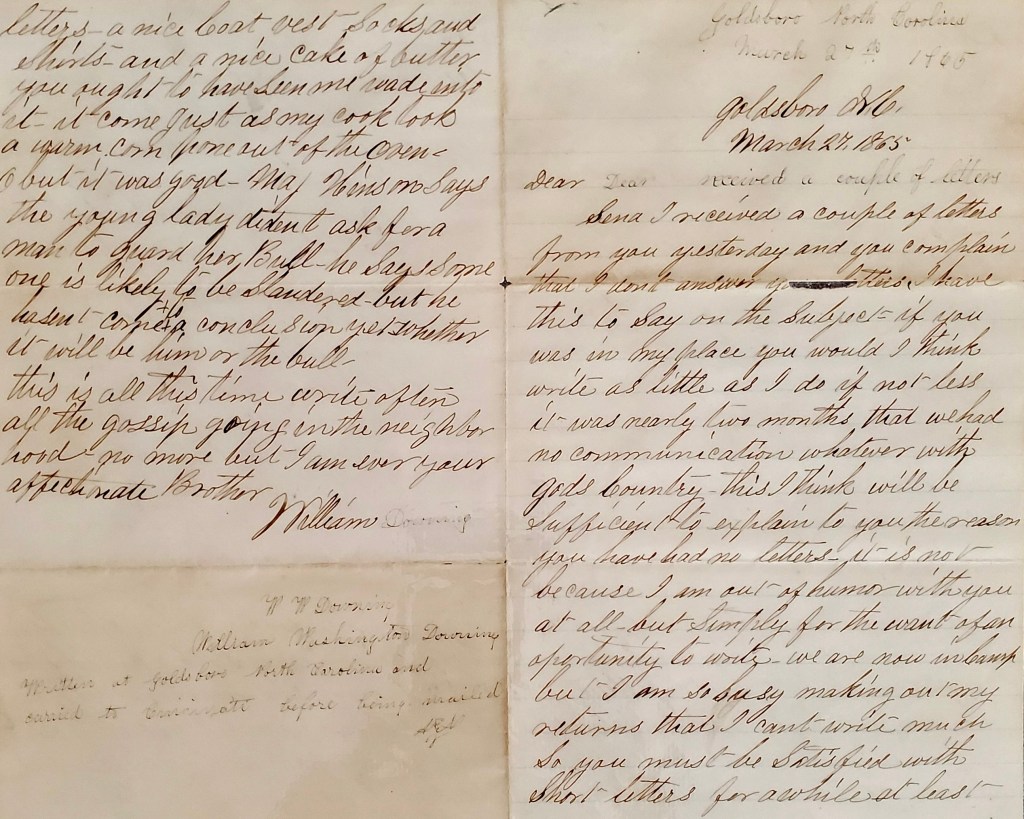 letters - a nice Coat, vest Socks, and
shirts - and a nice cake of butter
you ought to have seen me wade into
it - it come just as my cook took
a warm corn pone out of the oven -
but it was good - Maj Hinson says
the young lady dident ask for a
man to guard her Bull - he says some
one is likely to be slandered - but he
hasent come to a conclusion yet whether
it will be him or the bull -
this is all this time write often
all the gossip going in the neighbor
hood - no more but I am ever your
affectionate Brother
William Downing
W W Downing
William Washington Downing
Written at Goldsboro North Carolina and
carried to Cincinnati before being mailed
Goldsboro North Carolina
March 27th 1865
Goldsboro N.C.
March 27, 1865
Dear Dear received a couple of letters
Sena I received a couple of letters
from you yesterday and you complain
that I dont answer letters, I have
this to say on the subject - if you
was in my place you would I think
write as little as I do if not less
it was nearly two months, that we had
no communication whatever with
gods Country - this I think will be
sufficient to explain to you the reason
you have had no letters - it is not
because I am out of humor with you
at all - but simply for the want of an
oportunity to write - we are now in Camp
but I am so busy making out my
returns that I cant write much
so you must be satisfied with
short letters for awhile at least